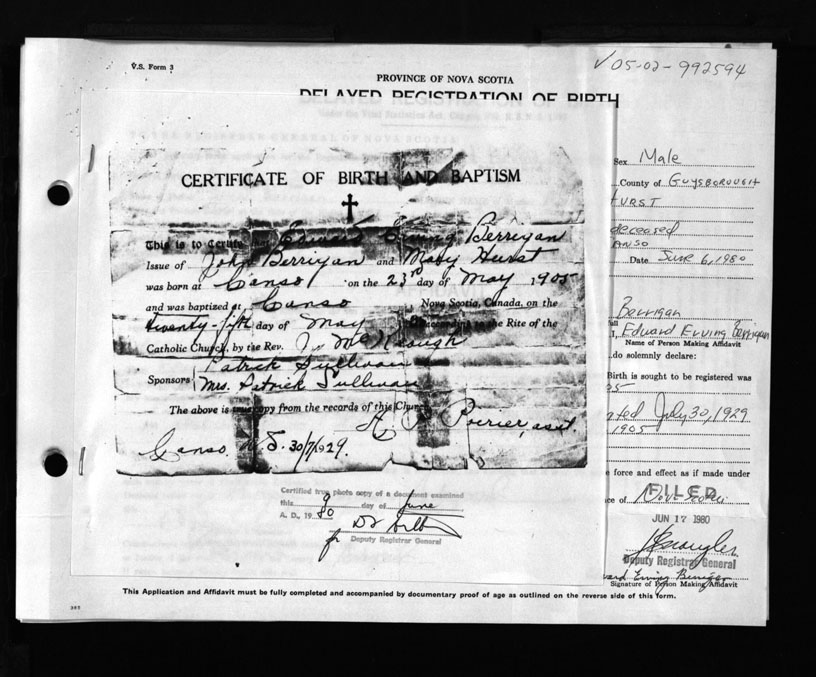 V.S. Form 3
✓05-02-992594
PROVINCE OF NOVA SCOTIA
DELAYED REGISTRATION OF BIRTH
CERTIFICATE OF BIRTH AND BAPTISM
This is to Certify Edward Erving Berrigan
Issue of John Berrigan and Mary Hurst
was born at Canso on the 23rd day of May 1905
and was baptized at Canso Nova Scotia, Canada, on the
twenty-fifth day of May according to the Rite of the
Catholic Church, by the Rev. J. McKeough
Patrick Sullivan
Sponsors Mrs. Patrick Sullivan
The above is true copy from the records of this Church
A. P. Poirier, asst.
Canso. N.S. 30/7/1929.
Certified true photo copy of a document examined
this 9 day of June
A. D., 19 80
for Deputy Registrar General
Sex Male
County of GUYSBOROUGH
HURST
deceased
CANSO
Date June 6, 1980
Berrigan
I, Edward Erving Berrigan
Name of Person Making Affidavit
do solemnly declare:
Birth is sought to be registered was
05
ated July 30, 1929
1905
e force and effect as if made under
ce of Nova Scotia
FILED
JUN 17 1980
Deputy Registrar General
ward Erving Berrigan
Signature of Person Making Affidavit
This Application and Affidavit must be fully completed and accompanied by documentary proof of age as outlined on the reverse side of this form.